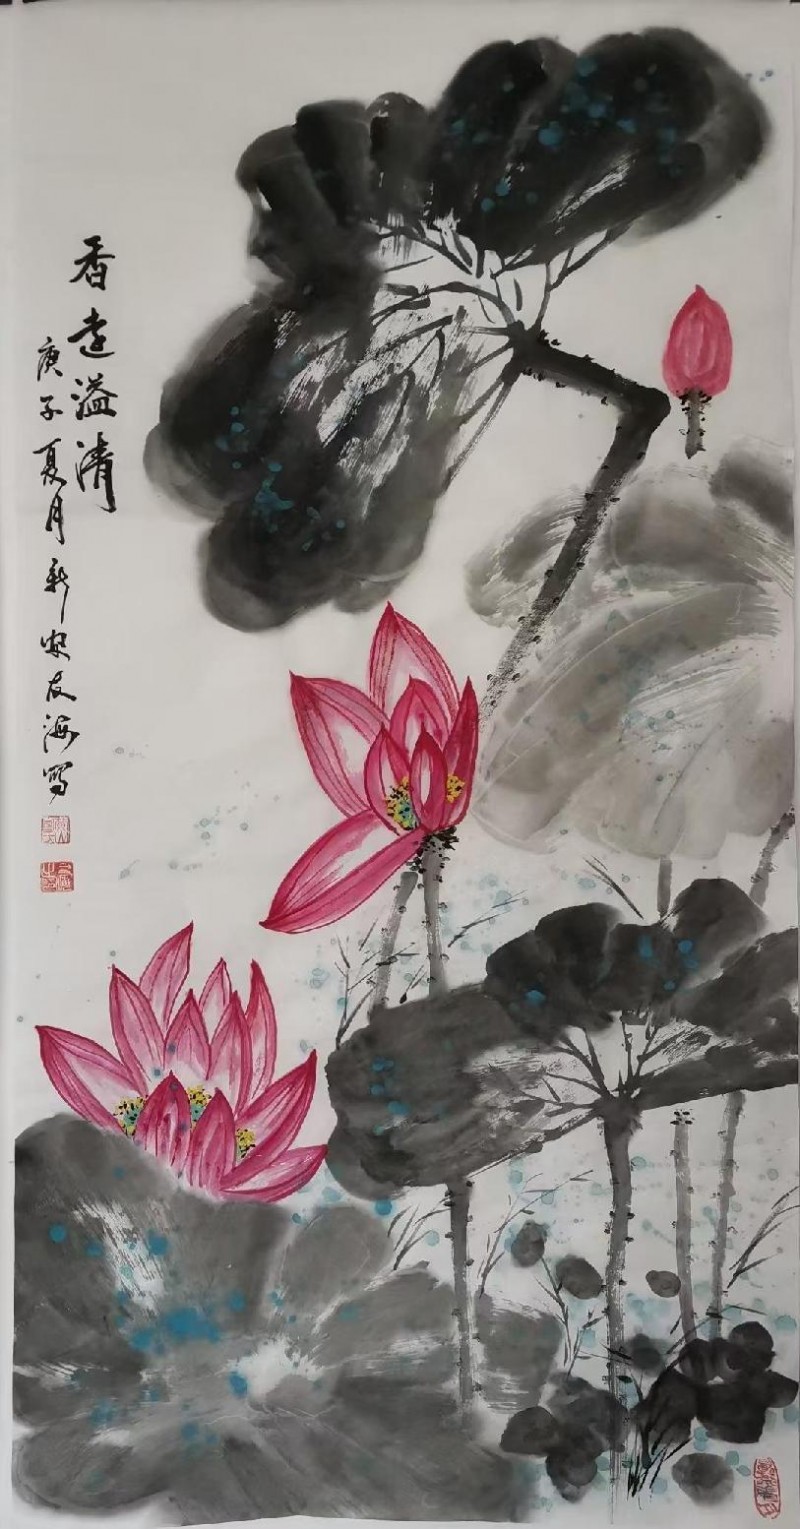 香遠溢清
庚子夏月新安友海写